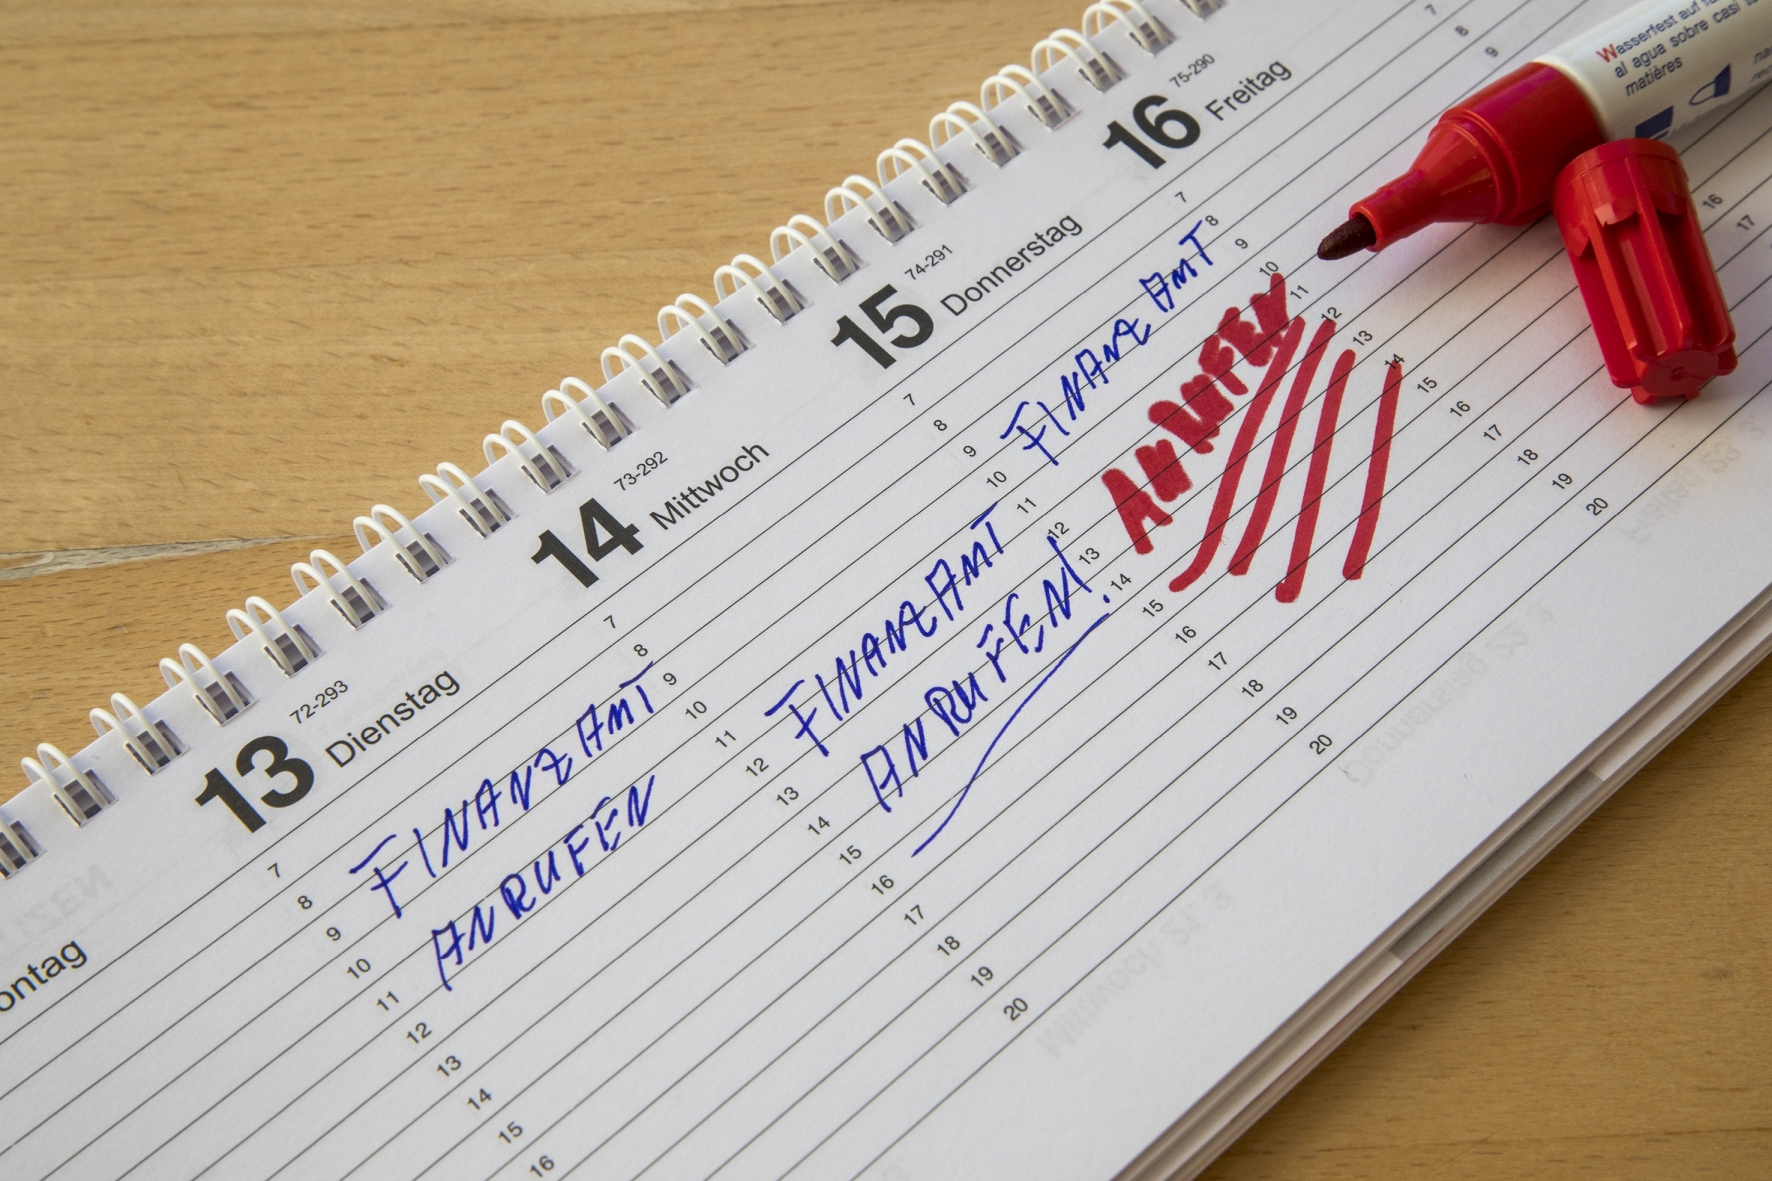 ontag
13
72-293
Dienstag
7
8
9
10
11
12
13
14
15
16
FINANZAMT
ANRUFEN
14
73-292
Mittwoch
7
8
9
10
11
12
13
14
15
16
17
18
19
20
FINANZAMT
ANRUFEN.
15
74-291
Donnerstag
7
8
9
10
11
12
13
14
15
16
17
18
19
20
FINANZAMT
ANRUFEN
16
75-290
Freitag
7
8
9
10
11
12
13
14
15
16
17
18
19
20
7
8
9
16
17
Wasserfest auf
al agua sobre casi
matières